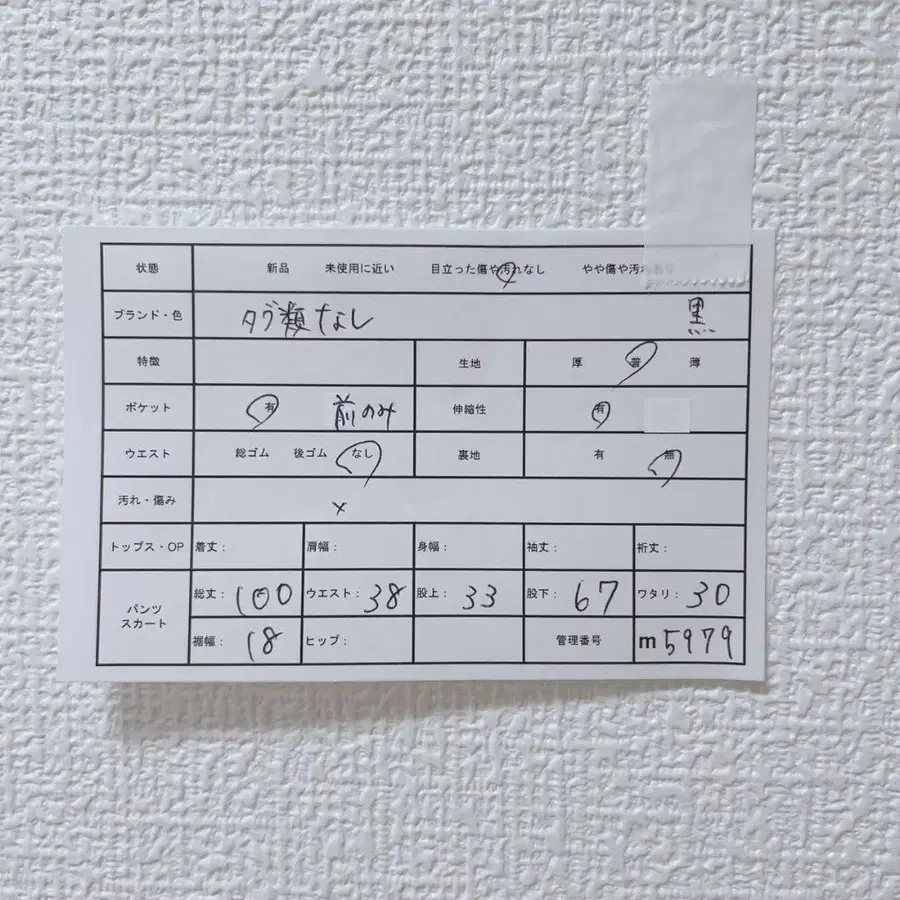 状態 新品 未使用に近い 目立った傷や汚れなし やや傷や汚れあり
ブランド・色 タグ類なし 黒
特徴 生地 厚 普 薄
ポケット 有 前のみ 伸縮性 有
ウエスト 総ゴム 後ゴム なし 裏地 有 無
汚れ・傷み ×
トップス・OP 着丈： 肩幅： 身幅： 袖丈： 裄丈：
パンツ スカート 総丈：100 ウエスト：38 股上：33 股下：67 ワタリ：30
裾幅：18 ヒップ： 管理番号 m5979